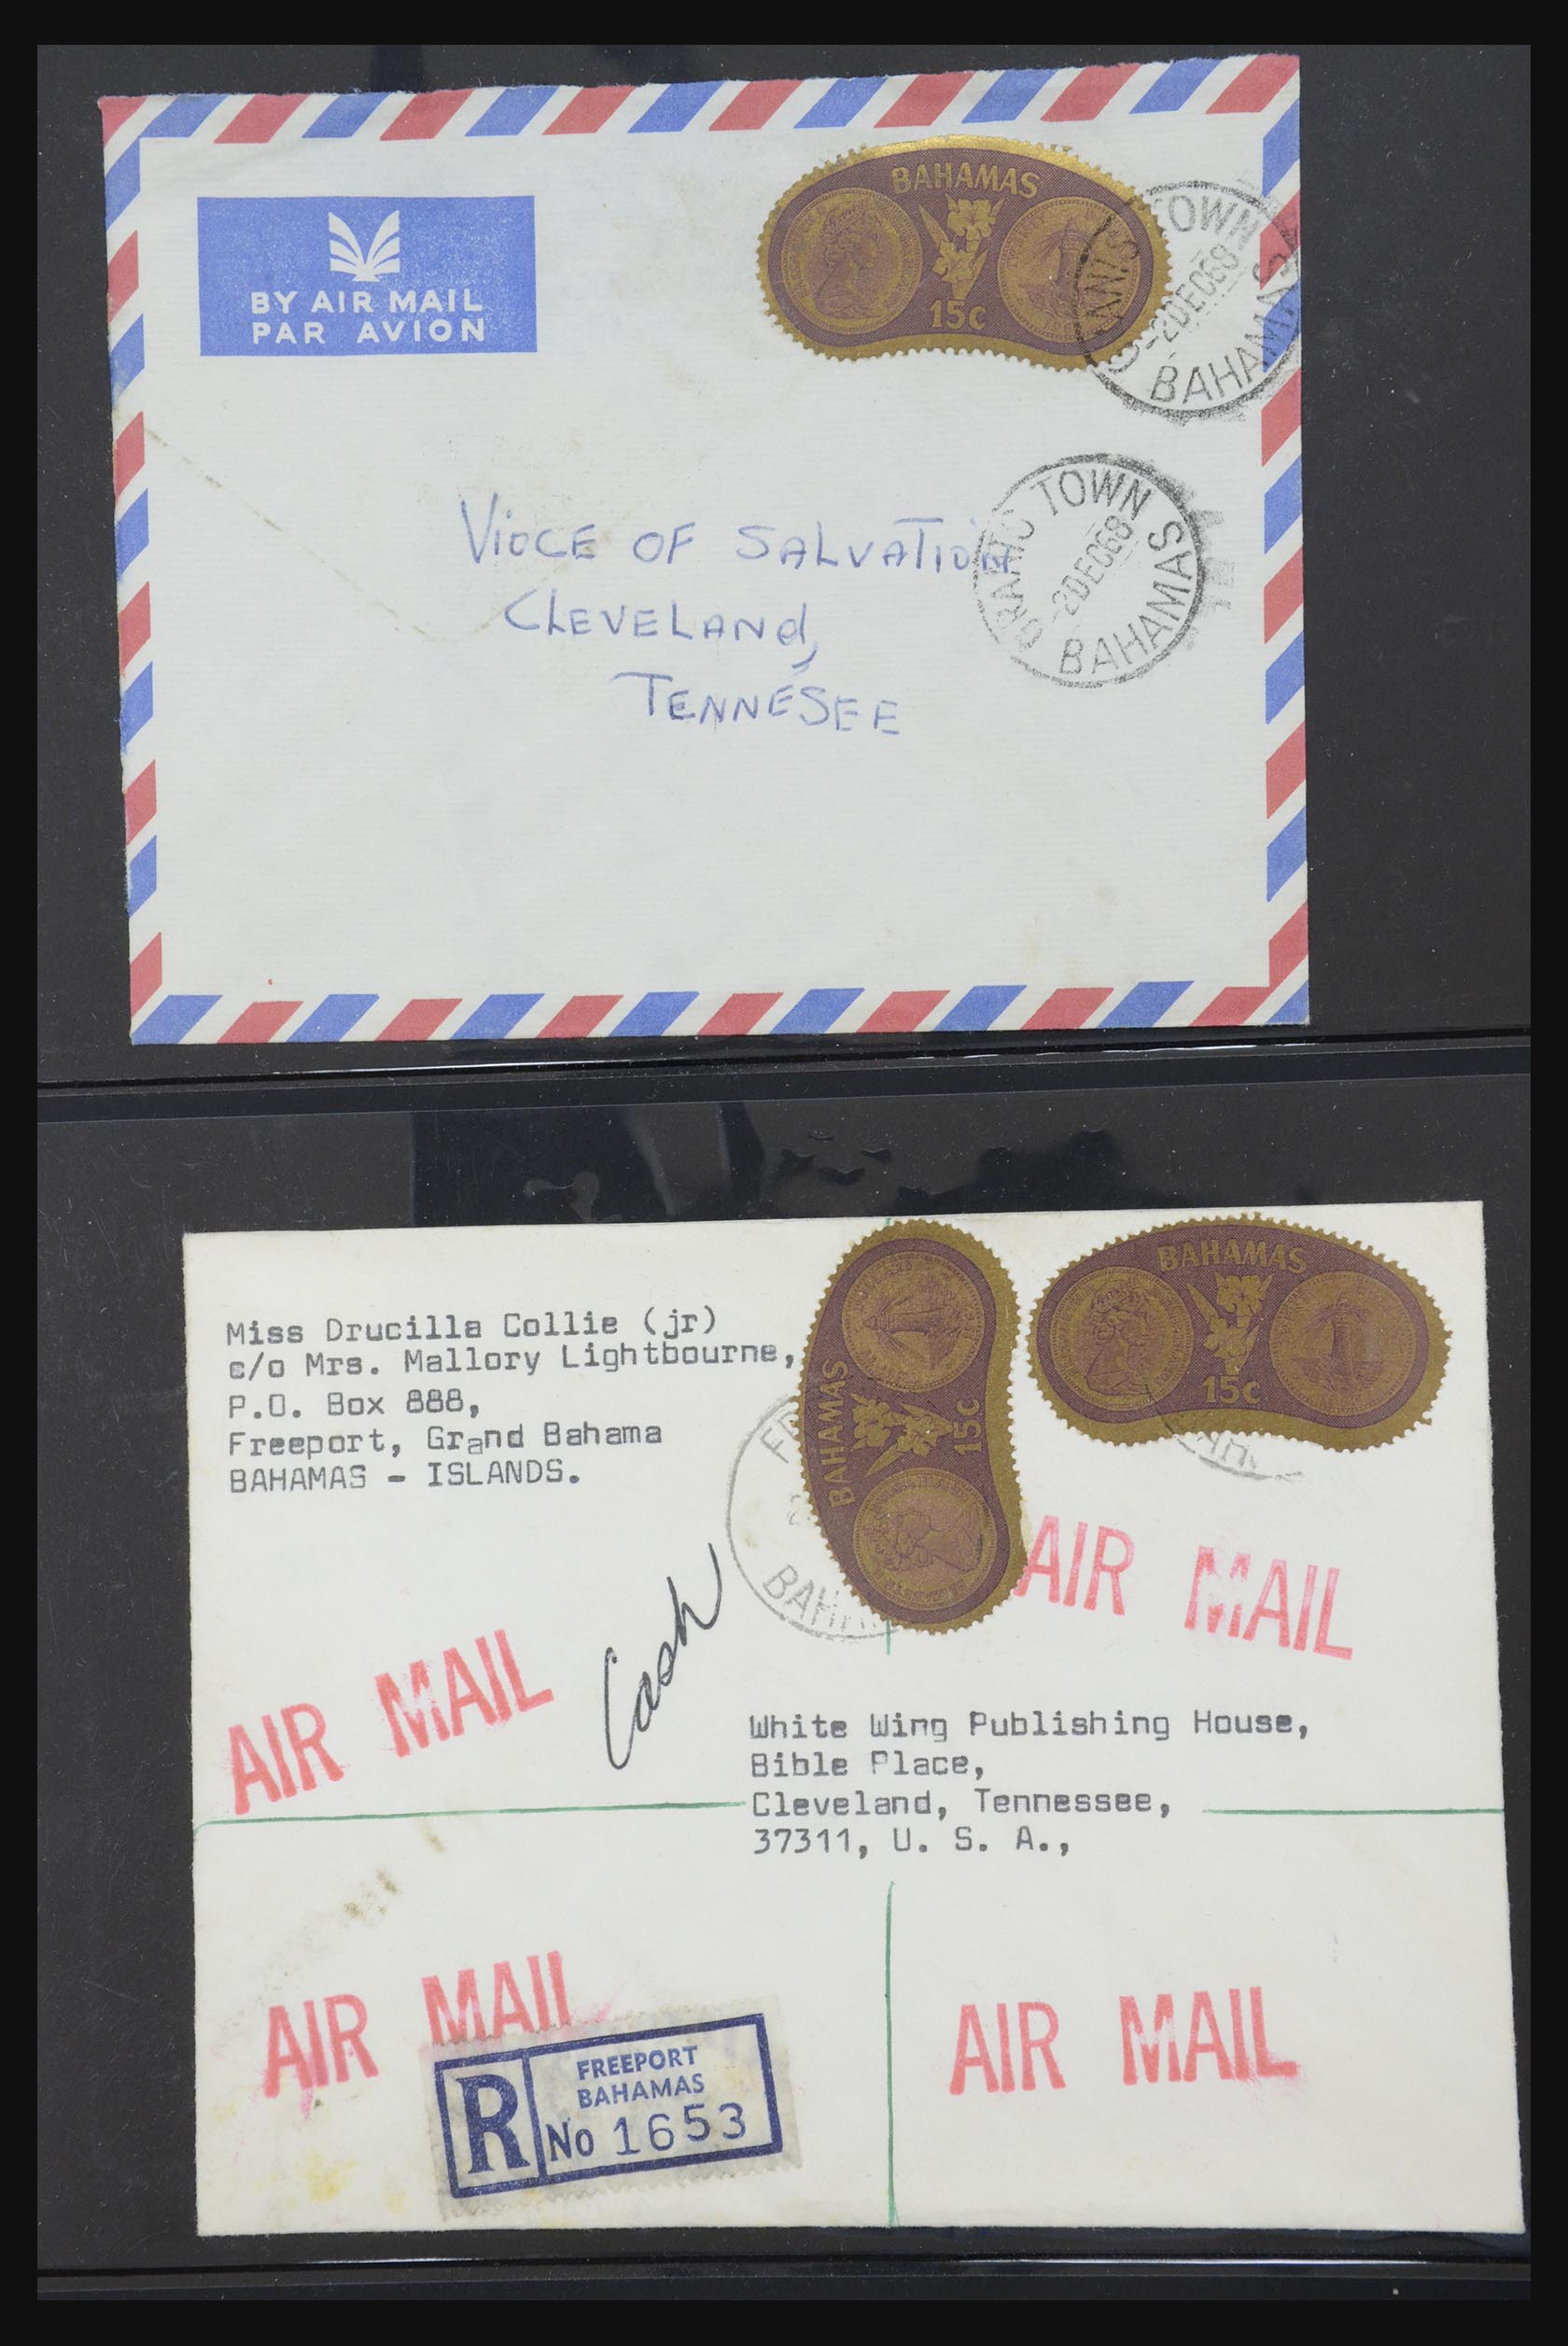 BY AIR MAIL
PAR AVION
BAHAMAS
15c
GRANTS TOWN
-2DEC68
BAHAMAS
GRANTS TOWN
-2DEC68
BAHAMAS
VIOCE OF SALVATION
CLEVELAND,
TENNESEE
Miss Drucilla Collie (jr)
c/o Mrs. Mallory Lightbourne,
P.O. Box 888,
Freeport, Grand Bahama
BAHAMAS - ISLANDS.
BAHAMAS
15c
BAHAMAS
15c
AIR MAIL
Cash
AIR MAIL
White Wing Publishing House,
Bible Place,
Cleveland, Tennessee,
37311, U. S. A.,
AIR MAIL
AIR MAIL
R
FREEPORT
BAHAMAS
No 1653